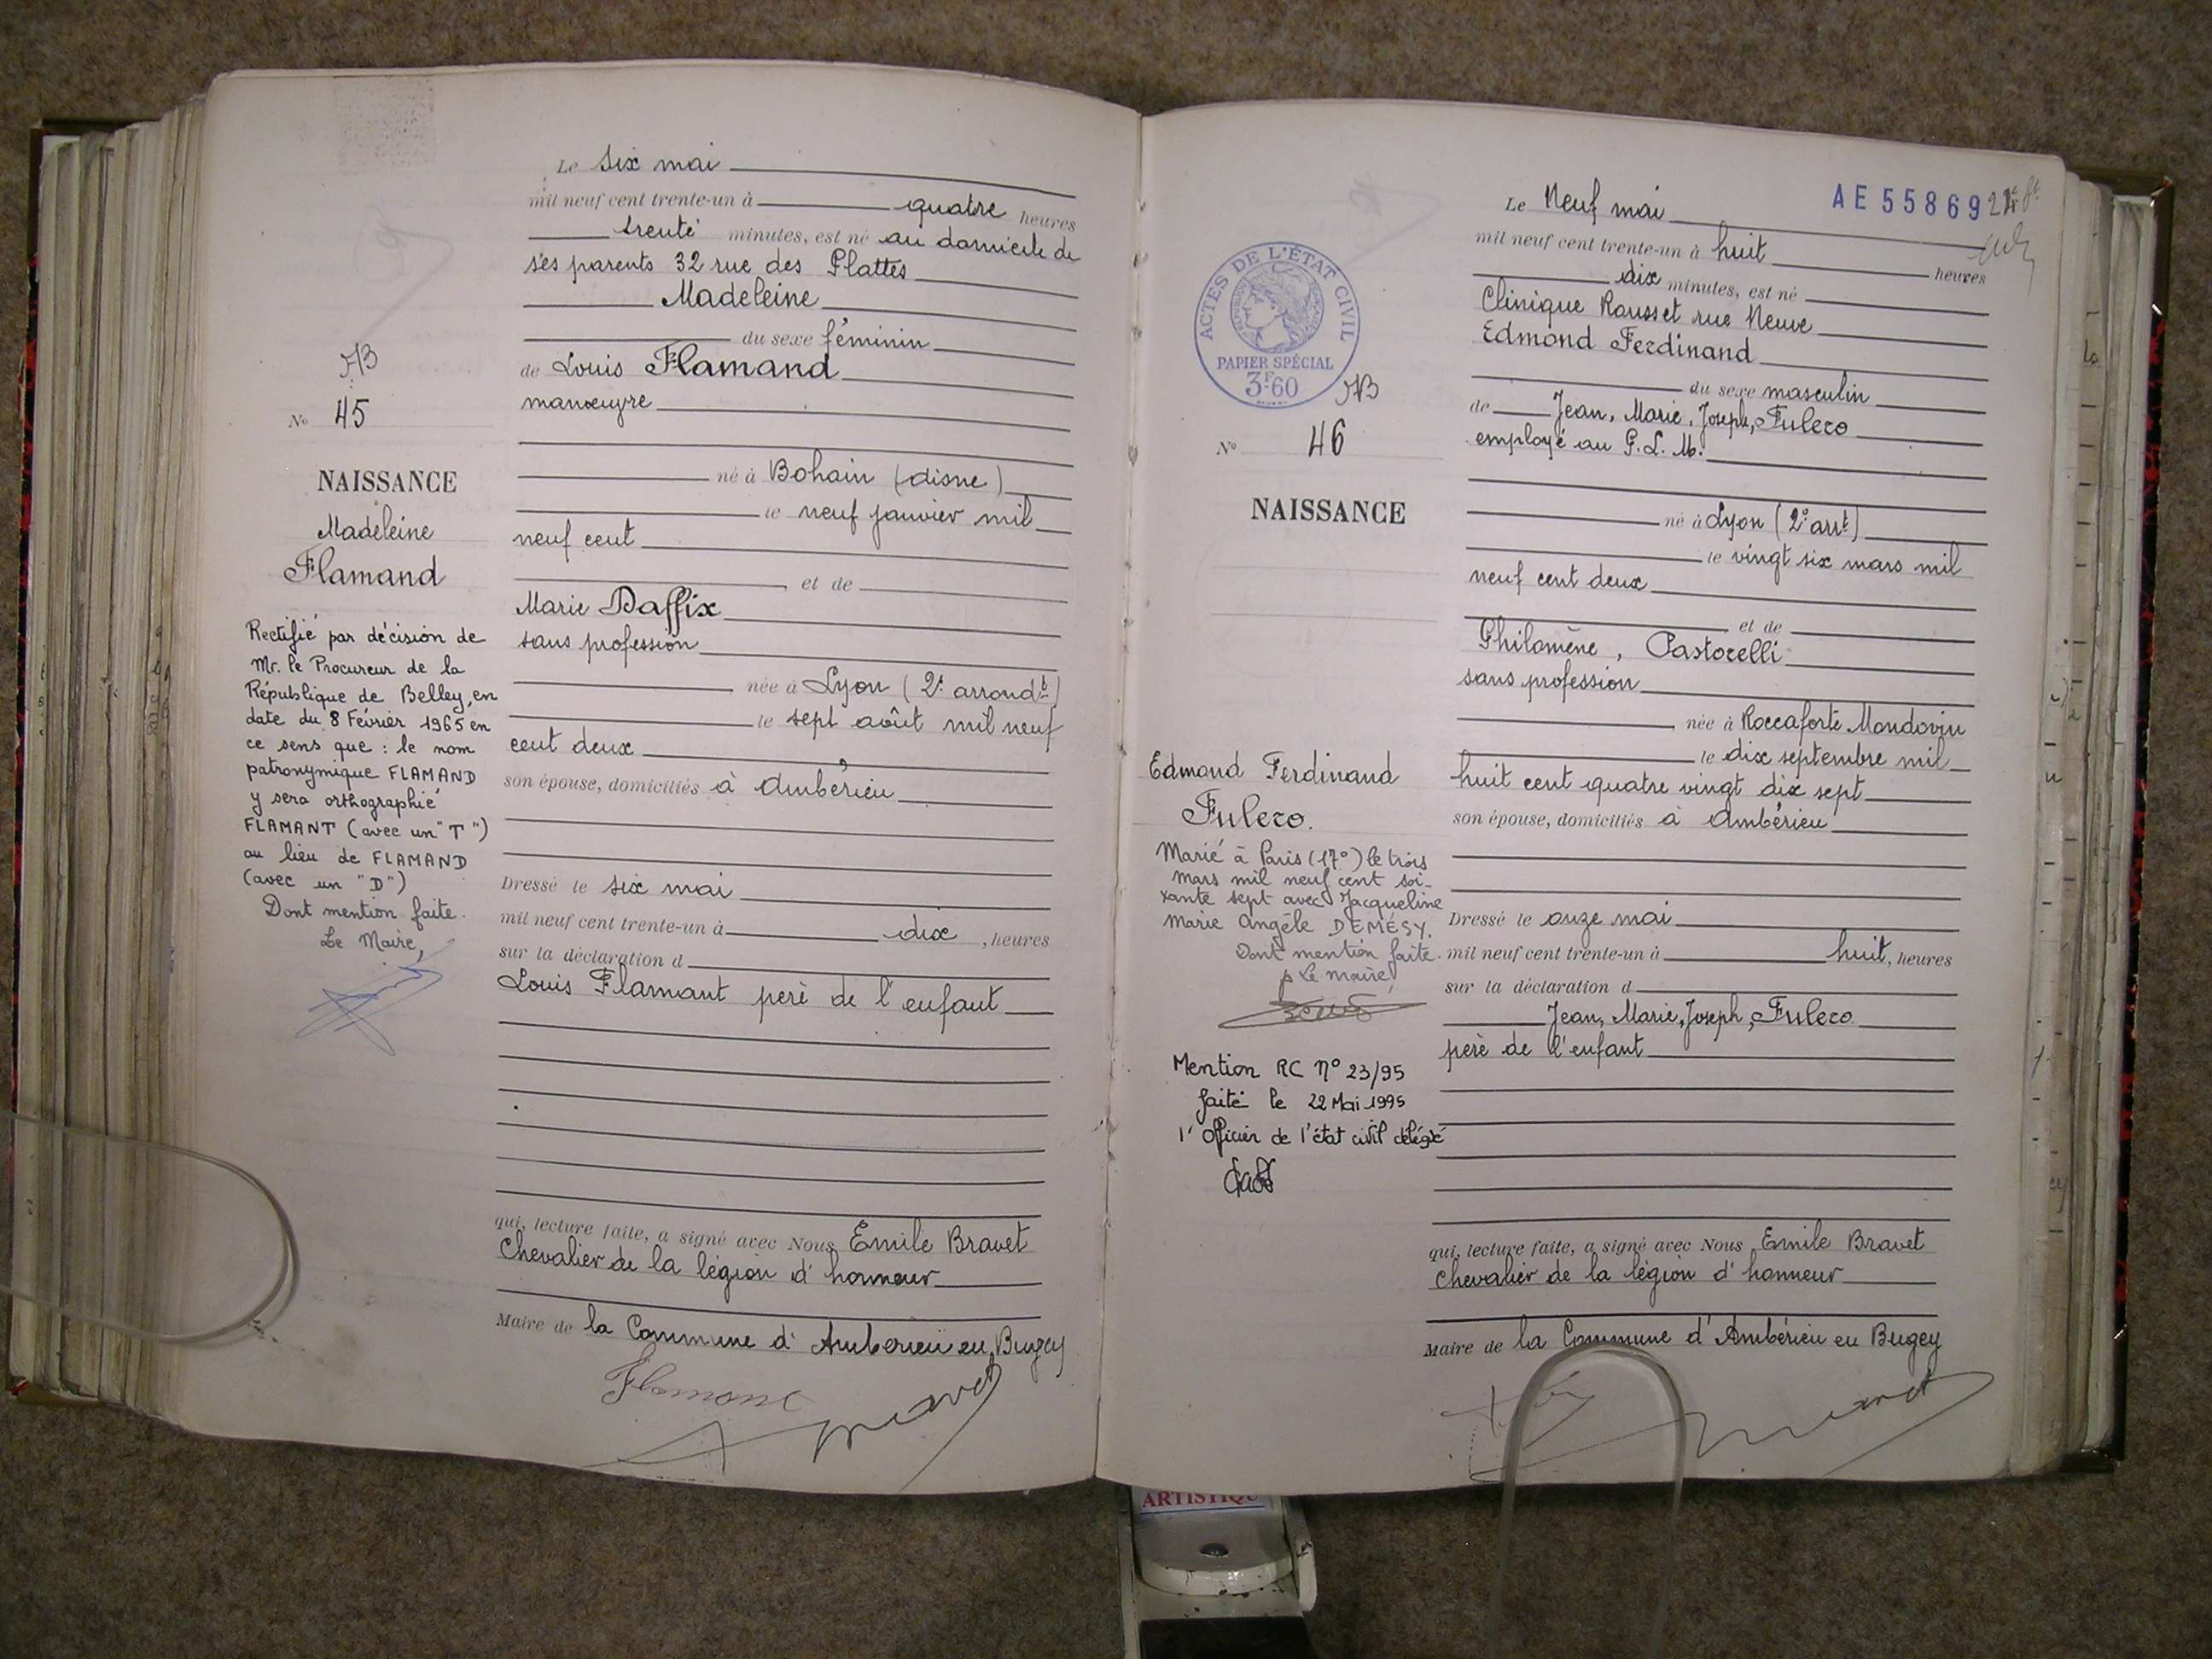 Le Six mai
mil neuf cent trente-un à quatre heures
trente minutes, est né au domicile de
ses parents 32 rue des Plattes
Madeleine
du sexe féminin
de Louis Flamand
manœuvre
né à Bohain (Aisne)
le neuf janvier mil
neuf cent
et de
Marie Daffix
sans profession
née à Lyon (2e arrondt)
le sept août mil neuf
cent deux
son épouse, domiciliés à Ambérieu
Dressé le six mai
mil neuf cent trente-un à dix, heures
sur la déclaration d
Louis Flamant père de l'enfant
qui, lecture faite, a signé avec Nous Emile Bravet
Chevalier de la légion d'honneur
Maire de la Commune d'Ambérieu en Bugey
Flamant
Bravet
No 45
NAISSANCE
Madeleine
Flamand
Rectifié par décision de
Mr. le Procureur de la
République de Belley, en
date du 8 Février 1965 en
ce sens que : le nom
patronymique FLAMAND
y sera orthographié
FLAMANT (avec un "T")
au lieu de FLAMAND
(avec un "D")
Dont mention faite.
Le Maire,
AE 55869
Le Neuf mai
mil neuf cent trente-un à huit heures
dix minutes, est né
Clinique Rousset rue Neuve
Edmond Ferdinand
du sexe masculin
de Jean, Marie, Joseph, Fulero
employé au P.L.M.
né à Lyon (2e arrt)
le vingt six mars mil
neuf cent deux
et de
Philomène, Pastorelli
sans profession
née à Roccaforte Mondoviu
le dix septembre mil
huit cent quatre vingt dix sept
son épouse, domiciliés à Ambérieu
Dressé le onze mai
mil neuf cent trente-un à huit, heures
sur la déclaration d
Jean, Marie, Joseph, Fulero
père de l'enfant
qui, lecture faite, a signé avec Nous Emile Bravet
Chevalier de la légion d'honneur
Maire de la Commune d'Ambérieu en Bugey
Bravet
ACTES DE L'ÉTAT CIVIL
PAPIER SPÉCIAL
3F60
No 46
NAISSANCE
Edmond Ferdinand
Fulero.
Marié à Paris (17°) le trois
mars mil neuf cent soi-
xante sept avec Jacqueline
Marie Angèle DEMÉSY.
Dont mention faite.
p Le maire,
Mention RC N° 23/95
faite le 22 Mai 1995
l'Officier de l'état civil délégué
ARTISTIQU